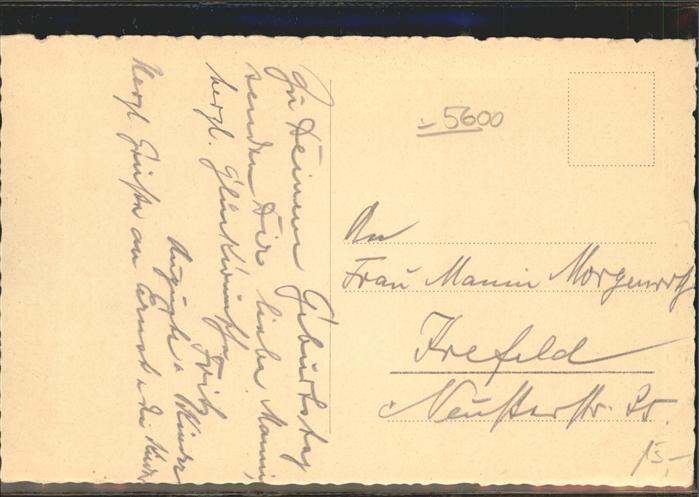 Zu Deinem Geburtstag
senden Dir liebe Manni,
herzl. Glückwünsche
Fritz
Auguste u. Kinder
Herzl. Grüße an Ernst u. die Kinder
5600
An
Frau Manni Morgenroth
Krefeld
Neußerstr. 25.
15,-